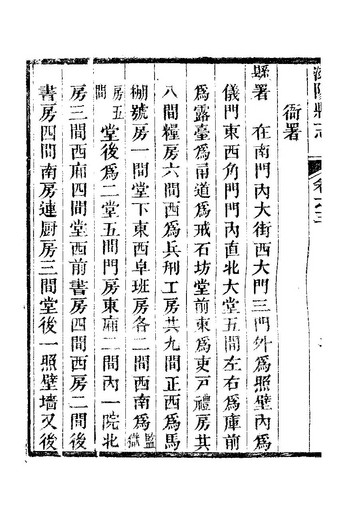 衙署
縣署　在南門內大街西大門三門外爲照壁內爲
儀門東西角門門內直北大堂五間左右爲庫前
爲露臺爲甬道爲戒石坊堂前東爲吏戶禮房共
八間糧房六間西爲兵刑工房共九間正西爲馬
糊號房一間堂下東西皁班房各二間西南爲監獄
房五間堂後爲二堂五間門房東廂二間內一院北
房三間西廂四間堂西前書房四間西房二間後
書房四間南房連厨房三間堂後一照壁墻又後